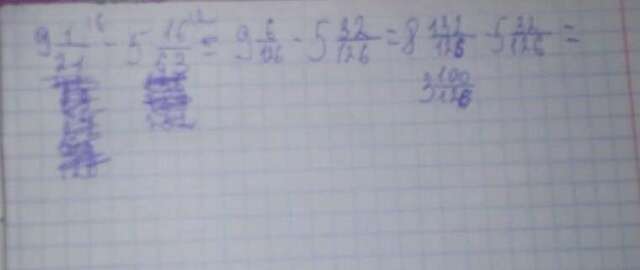 9 1/21 - 5 16/63 = 9 6/126 - 5 32/126 = 8 132/126 - 5 32/126 =
3 100/126